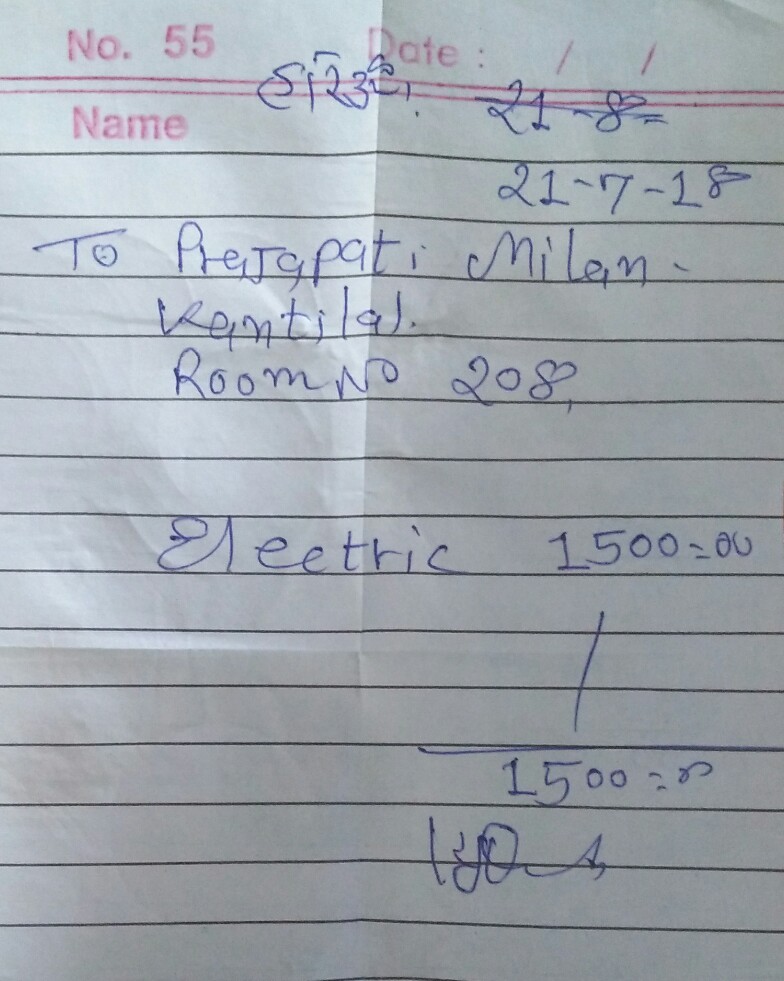 No. 55 Date : / /
Name
21-8=
21-7-18
To Prajapati Milan-
Kantilal.
Room No 208,
Electric 1500=00
1500=00